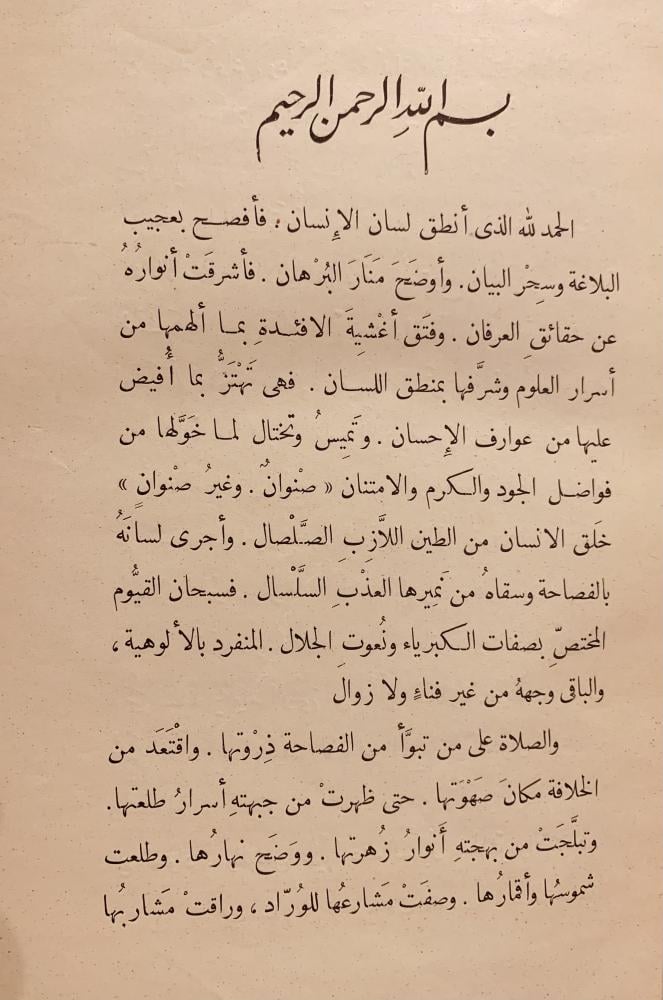 بسم الله الرحمن الرحيم
الحمد لله الذى أنطق لسان الإنسان . فأفصح بعجيب
البلاغة وسِحْر البيان . وأوضَحَ مَنَارَ البُرْهان . فأشرقَتْ أنوارُهُ
عن حقائقِ العرفان . وفتَق أغْشيةَ الافئدةِ بما ألهمها من
أسرار العلوم وشرَّفها بمنطق اللسان . فهى تَهْتَزُّ بما أُفيض
عليها من عوارف الإحسان . وتَمِيسُ وتختال لما خوَّلها من
فواضل الجود والكرم والامتنان « صْنوانٌ . وغيرُ صْنوانٍ »
خلَق الانسان من الطين اللاَّزِبِ الصَّلْصال . وأجرى لسانَهُ
بالفصاحة وسقاهُ من نَمِيرها العذْبِ السَّلْسال . فسبحان القيُّوم
المختصِّ بصفات الكبرياء ونُعوتِ الجلال . المنفرد بالألوهية ،
والباقى وجههُ من غير فناءٍ ولا زوال
والصلاة على من تبوَّأ من الفصاحة ذِرْوتها . واقْتَعَد من
الخلافة مكانَ صَهْوَتها . حتى ظهرتْ من جبهتهِ أسرارُ طلعتها .
وتبلَّجَتْ من بهجتهِ أَنوارُ زُهرتها . ووَضَح نهارُها . وطلعت
شموسُها وأقمارُها . وصفَتْ مَشارعُها للوُرّاد ، وراقتْ مَشاربُها